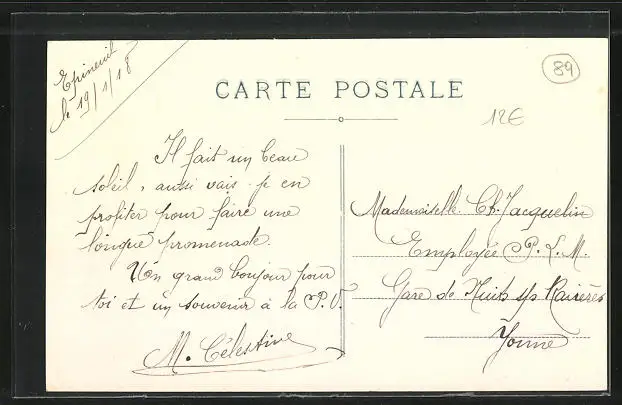 Epineuil
le 19/1/18
89
CARTE POSTALE
12€
Il fait un beau
soleil, aussi vais-je en
profiter pour faire une
longue promenade.
Un grand bonjour pour
toi et un souvenir à la P.V.
M. Célestine
Mademoiselle Ch. Jacquelin
Employée P.L.M.
Gare de Nuits s/s Ravières
Yonne